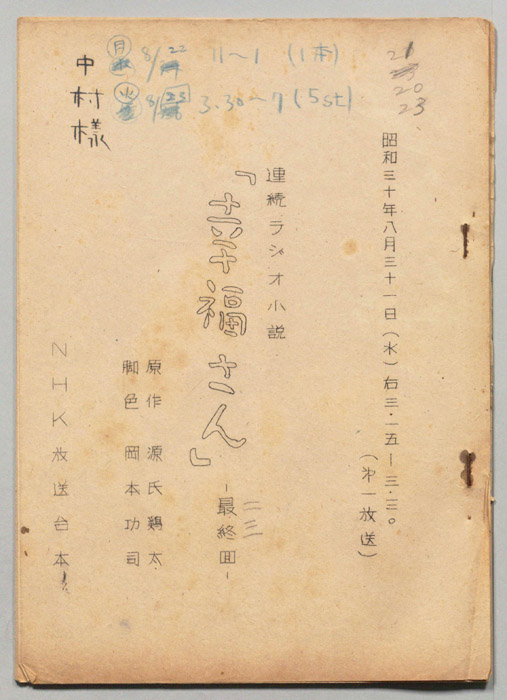 21
20
23
㊊ 8/22 11〜1 (1本)
㊋ 8/23 3.30〜7 (5st)
中村様
昭和三十年八月三十一日(水)右三・一五―三・三〇
(第一放送)
連続ラジオ小説
『幸福さん』
二三
―最終回―
原作 源氏鶏太
脚色 岡本功司
NHK放送台本